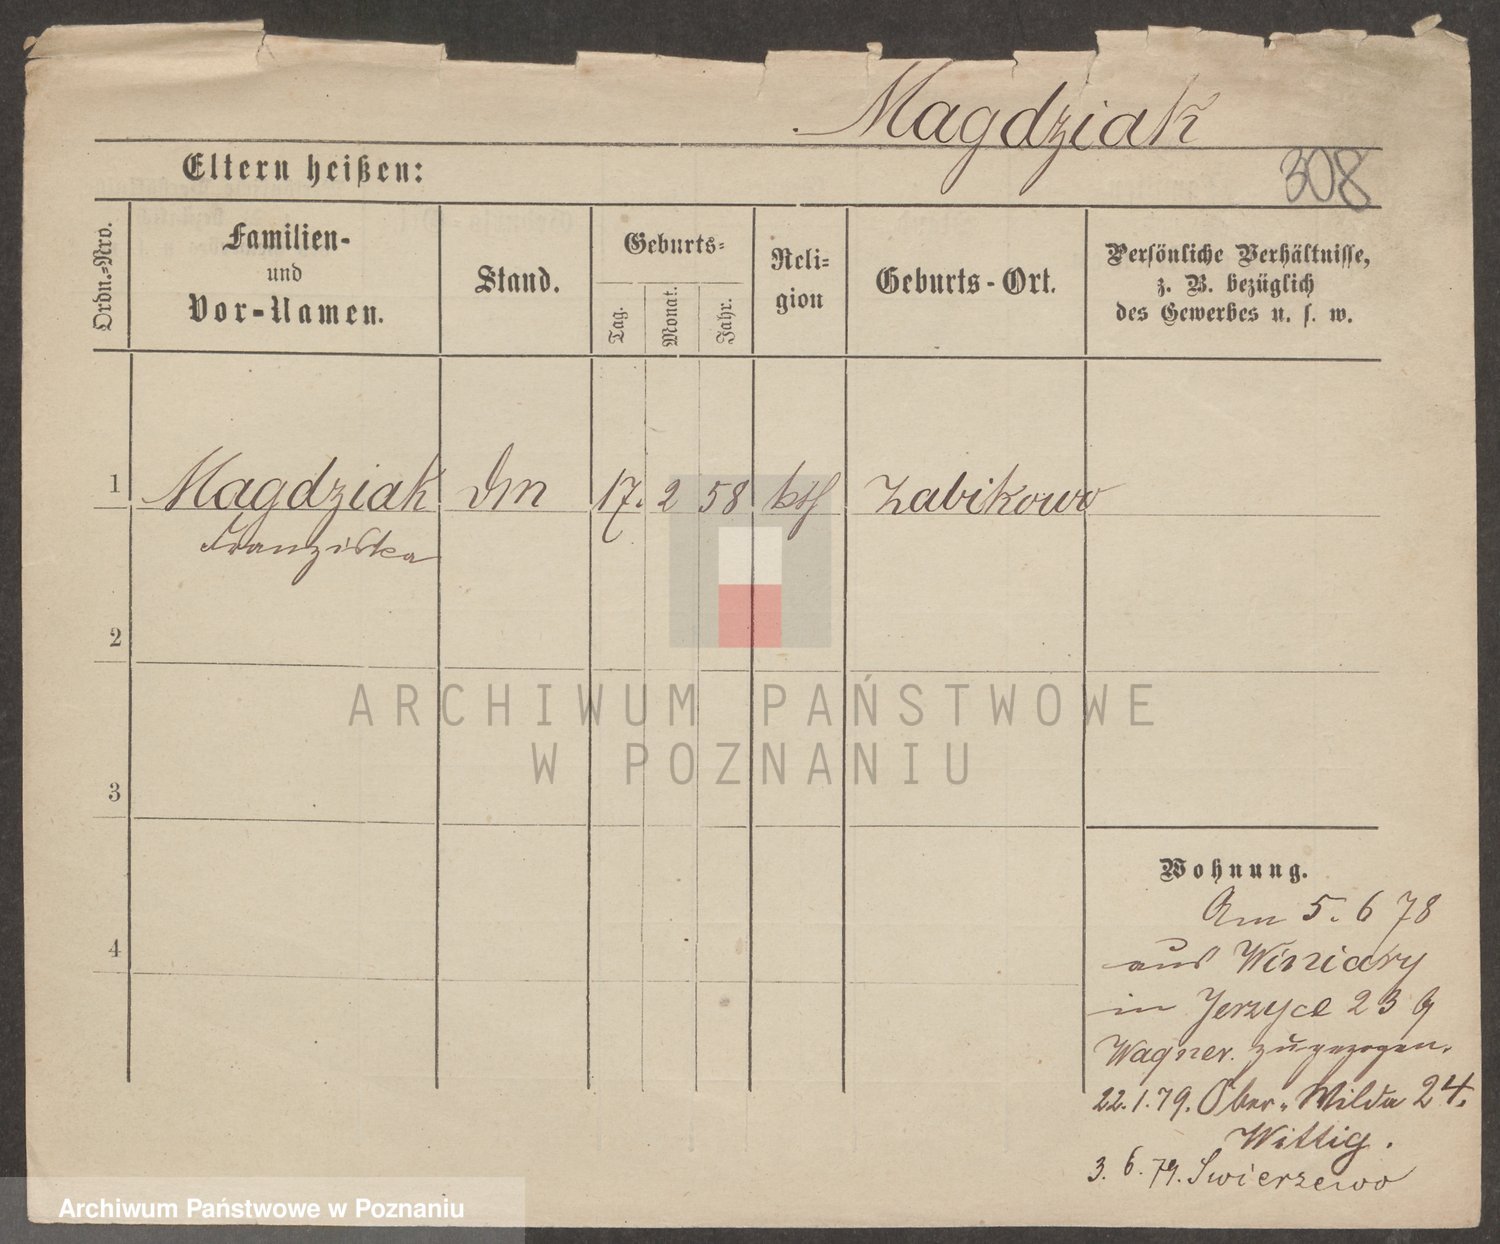 Magdziak
Eltern heißen:
308
Ordn.-Nro.
Familien-
und
Vor-Namen.
Stand.
Geburts-
Tag.
Monat.
Jahr.
Reli-
gion
Geburts-Ort.
Persönliche Verhältnisse,
z. B. bezüglich
des Gewerbes u. s. w.
1 Magdziak 17. 2 58 kth Zabikowo
Franziska
2
3
4
Wohnung.
Am 5. 6 78
aus Winiary
in Jerzyce 23 g
Wagner. zugezogen.
22.1.79. Ober-Wilda 24.
Wittig.
3. 6. 79. Swierzewo
ARCHIWUM PAŃSTWOWE
W POZNANIU
Archiwum Państwowe w Poznaniu